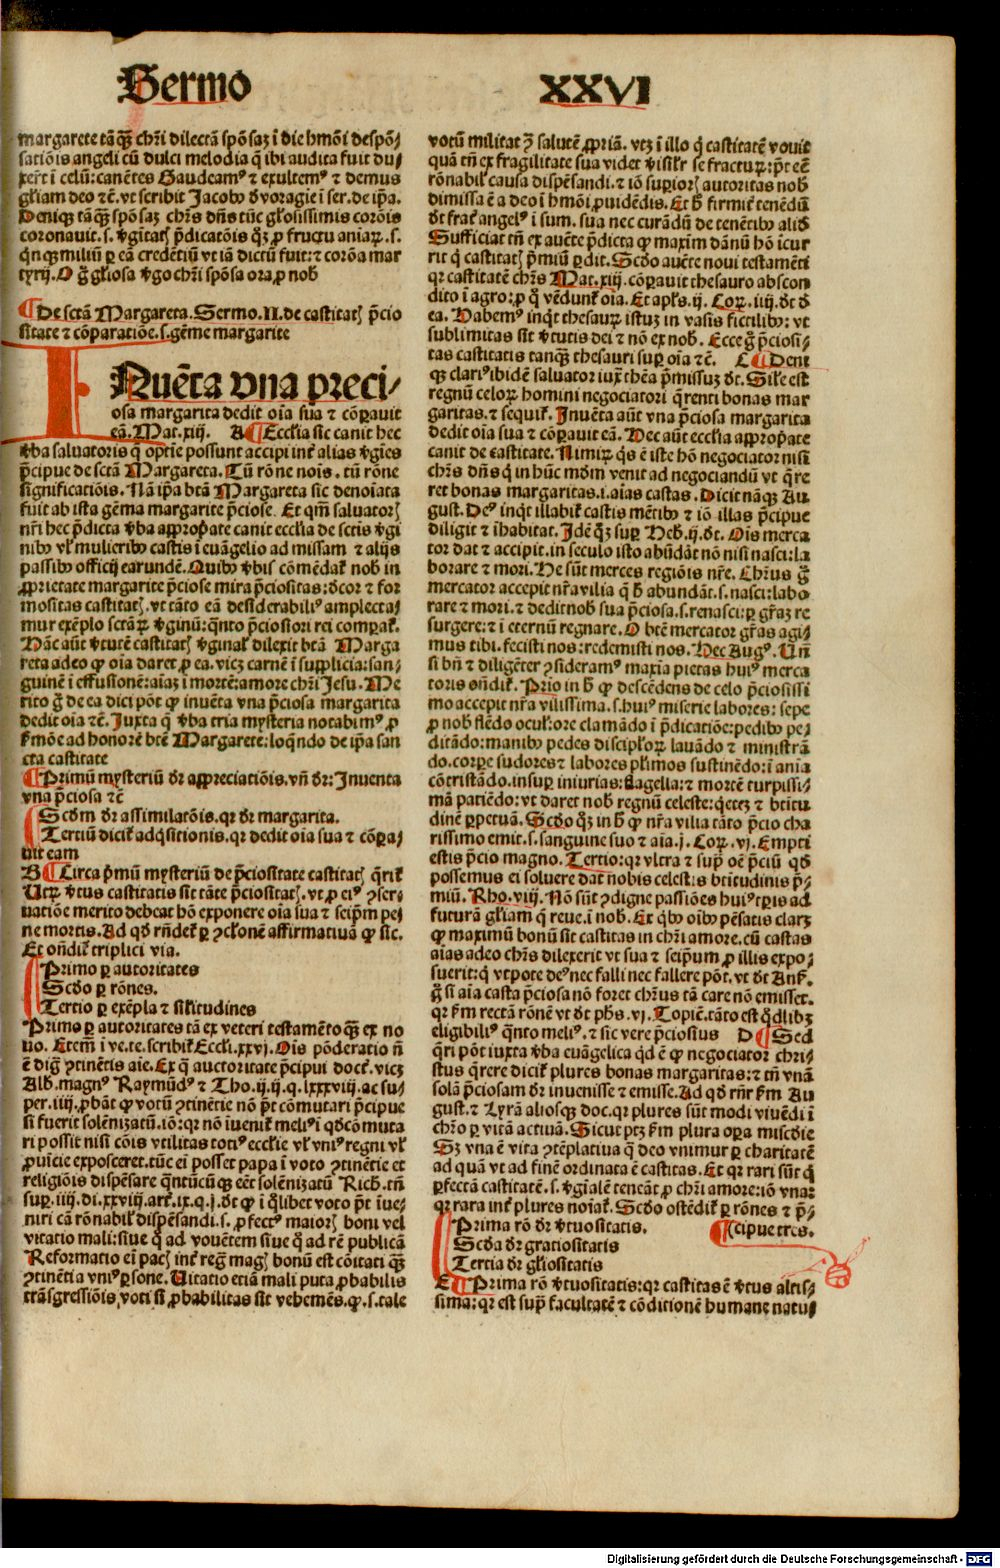 Sermo XXVI
margarete tāqȝ chr̄i dilectā spōsaȝ ī die hmōi despō⸗
satiōis angeli cū dulci melodia q̄ ibi audita fuit du⸗
xer̄t ī celū: canētes Gaudeamꝰ ⁊ exultemꝰ ⁊ demus
gl̄iam deo ⁊c̄. vt scribit Jacobꝰ d̄ voragīe ī ser. de ip̄a.
Deniqȝ tāqȝ spōsaȝ chr̄s dn̄s tūc gl̄osissimis corōis
coronauit. s. v̄gītatꝭ p̄dicatōis qȝ ꝓ fructu aīaꝝ. s.
qnqȝ miliū ꝑ eā credētiū vt iā dictū fuit: ⁊ corōa mar
tyrij. O g̊ gl̄iosa v̄go chr̄i spōsa ora ꝓ nob
¶ De sctā Margareta. Sermo. II. de castitatꝭ p̄cio
sitate ⁊ cōparatiōe. s. gēme margarite
INuēta vna preci⸗
osa margarita dedit oīa sua ⁊ cōꝑauit
eā. Mat. xiij. A ¶ Eccl̄ia sic canit hec
v̄ba saluatoris q̄ optīe possunt accipi int̄ alias v̄gīes
p̄cipue de sctā Margareta. Tū rōne noīs. tū rōne
significatiōis. Nā ip̄a btā Margareta sic denoīata
fuit ab ista gēma margarite p̄ciose. Et qm̄ saluatorꝭ
nr̄i hec p̄dicta v̄ba appropͥate canit eccl̄ia de sctis v̄gi
nibꝰ vl̄ mulieribꝰ castis ī euāgelio ad missam ⁊ alijs
passibꝰ officij earundē. Quibꝰ v̄bis cōmēdat̄ nob in
ꝓprietate margarite p̄ciose mira p̄ciositas: dc̄or ⁊ for
mositas castitatꝭ. vt tāto eā desiderabiliꝰ amplecta⸗
mur exēplo sctāꝝ v̄ginū: qnto p̄ciosiori rei comparat̄.
Hāc aūt v̄tutē castitatꝭ v̄ginal̄ dilexit btā Marga
reta adeo qꝫ oīa daret ꝓ ea. vicȝ carnē ī supplicia: san⸗
guinē ī effusionē: aīaȝ ī mortē: amore chr̄i Jesu. Me
rito g̊ de ea dici pōt ꝙ inuēta vna p̄ciosa margarita
dedit oīa ⁊c̄. Juxta q̄ v̄ba tria mysteria notabimꝰ ꝓ
s̄mōe ad honorē btē Margarete: loqndo de ip̄a san
cta castitate
¶ Primū mysteriū dr̄ appreciatiōis. vn̄ dr̄: Inuenta
vna p̄ciosa ⁊c̄
Scdm dr̄ assimilatōis. qꝛ dr̄ margarita.
Tertiū dicit̄ adqsitionis. qꝛ dedit oīa sua ⁊ cōꝑa⸗
uit eam
B ¶ Circa p̄mū mysteriū de p̄ciositate castitatꝭ q̄rit̄
Utꝝ v̄tus castitatis sit tāte p̄ciositatꝭ. vt ꝓ eiꝰ ꝯser⸗
uatiōe merito debeat hō exponere oīa sua ⁊ seip̄m pe⸗
ne mortis. Ad qd̄ rn̄det̄ ꝑ ꝯcl̄onē affirmatiuā ꝙ sic.
Et on̄dit̄ triplici via.
Primo ꝑ autoritates
Scdo ꝑ rōnes.
Tertio ꝑ exēpla ⁊ silitudines
Primo ꝑ autoritates tā ex veteri testamēto qȝ ex no
uo. Etem̄ ī ve. te. scribit̄ Eccl̄i. xxvj. Oīs pōderatio n̄
ē digͣ ꝯtinētis aīe. Ex q̄ auctoritate p̄cipui doct̄. vicȝ
Alb. magnꝰ Raymūdꝰ ⁊ Tho. ij. ij. q. lxxxviij. ac su⸗
per. iiij. ꝓbāt ꝙ votū ꝯtinētie nō pt̄ cōmutari p̄cipue
si fuerit solēnizatū. iō: qꝛ nō iuenit̄ meliꝰ ī qd̄ cōmuta
ri possit nisi cōis vtilitas totiꝰ eccl̄ie vl̄ vniꝰ regni vl̄
ꝓuīcie exposceret. tūc em̄ posset papa ī voto ꝯtinētie et
religiōis dispēsare qntūcūqȝ eēt solēnizatū Rich. tn̄
suꝑ. iiij. di. xxviij. art̄. ix. q. j. dt̄ ꝙ ī qlibet voto pt̄ īue⸗
niri cā rōnabil̄ dispēsandi. s. ꝓfectꝰ maiorꝭ boni vel
vitatio mali: siue q̄ ad vouētem siue q̄ ad rē publicā
Reformatio em̄ pacꝭ int̄ regꝭ magꝭ bonū est cōitati qȝ
ꝯtinētia vniꝰ ꝑsone. Uitatio etiā mali puta ꝓbabilis
trāsgressiōis voti si ꝓbabilitas sit vehemēs. ꝙ. s. tale
votū militat ꝯ̄ salutē ꝓpriā. vtȝ ī illo q̄ castitatē vouit
quā tn̄ ex fragilitate sua videt v̄isil̄r se fracturꝝ: pt̄ eē
rōnabil̄ causa dispēsandi. ⁊ iō suꝑiorꝭ autoritas nob
dimissa ē a deo ī hmōi ꝓuidēdis. Et h̄ firmit̄ tenēdū
dt̄ frat̄ angelꝰ ī sum. sua nec curādū de tenētibꝰ aliō
Sufficiat tn̄ ex auēte p̄dicta ꝙ maxim dānū hō īcur
rit q̄ castitatꝭ p̄miū ꝑdit. Scdo auēte noui testamēti
qꝛ castitatē chr̄s Mat. xiij. cōꝑauit thesauro abscon
dito ī agro: ꝓ q̊ vēdunt̄ oīa. Et apl̄s. ij. Coꝝ. iiij. dt̄ d̄
ea. Habemꝰ inqt thesaurꝝ istuȝ in vasis fictilibꝰ: vt
sublimitas sit v̄tutis dei ⁊ nō ex nob. Ecce g̊ p̄ciosi⸗
tas castitatis tanqȝ thesauri suꝑ oīa ⁊c̄. C ¶ Deni
qȝ clariꝰ ibidē saluator iux̄ thēa p̄missuȝ dt̄. Sil̄e est
regnū celoꝝ homini negociatori q̄renti bonas mar
garitas. ⁊ sequit̄. Inuēta aūt vna p̄ciosa margarita
dedit oīa sua ⁊ cōꝑauit eā. Hec aūt eccl̄ia appropͥate
canit de castitate. Nimiꝝ qs ē iste hō negociator nisi
chr̄s dn̄s q̄ in hūc mdm venit ad negociandū vt q̄re
ret bonas margaritas. i. aīas castas. Dicit nāqȝ Au
gust. Deꝰ inqt illabit̄ castis mētibꝰ ⁊ iō illas p̄cipue
diligit ⁊ īhabitat. Idē qȝ suꝑ Heb. ij. dt̄. Oīs merca
tor dat ⁊ accipit. in seculo isto abūdāt nō nisi nasci: la
borare ⁊ mori. He sūt merces regiōis nr̄e. Chr̄us g̊
mercator accepit nr̄a vilia q̄ h̄ abundāt. s. nasci: labo
rare ⁊ mori. ⁊ dedit nob sua p̄ciosa. s. renasci: ꝑ gr̄aȝ re
surgere: ⁊ ī eternū regnare. O btē mercator gr̄as agi⸗
mus tibi. fecisti nos: redemisti nos. Hec Augꝰ. Un̄
si bn̄ ⁊ diligēter ꝯsideramꝰ maxīa pietas huiꝰ merca
toris on̄dit̄. Prio in h̄ ꝙ descēdens de celo p̄ciosissi
mo accepit nr̄a vilissima. s. huiꝰ miserie labores: sepe
ꝓ nob flēdo ocul̄: ore clamādo ī p̄dicatiōe: pedibꝰ pe⸗
ditādo: manibꝰ pedes discipl̄oꝝ lauādo ⁊ ministrā
do. corꝑe sudores ⁊ labores pl̄imos sustinēdo: ī aīa
cōtristādo. insuꝑ iniurias: flagella: ⁊ mortē turpissi⸗
mā patiēdo: vt daret nob regnū celeste: qetēȝ ⁊ btītu
dinē ꝑpetuā. Scdo qȝ in h̄ ꝙ nr̄a vilia tāto p̄cio cha
rissimo emit. s. sanguine suo ⁊ aīa. j. Coꝝ. vj. Empti
estis p̄cio magno. Tertio: qꝛ vltra ⁊ supͣ oē p̄ciū qd̄
possemus ei soluere dat nobis celestis btītudinis p̄⸗
miū. Rho. viij. Nō sūt ꝯdigne passiōes huiꝰ tp̄is ad
futurā gl̄iam q̄ reue. ī nob. Ex qbꝰ oībꝰ pēsatis claꝝ
ꝙ maximū bonū sit castitas in chr̄i amore. cū castas
aīas adeo chr̄s dilexerit vt sua ⁊ seipsum ꝓ illis expo⸗
suerit: q̄ vtpote deꝰ nec falli nec fallere pōt. vt dt̄ Ans̄.
g̊ si aīa casta p̄ciosa nō foret chr̄us tā care nō emisset.
qꝛ s̄m rectā rōnē vt dt̄ phs. vj. Topic̄. tāto est qdlibȝ
eligibiliꝰ qnto meliꝰ. ⁊ sic vere p̄ciosius D ¶ Sed
q̄ri pōt iuxta v̄ba euāgelica qd ē ꝙ negociator chri⸗
stus q̄rere dicit̄ plures bonas margaritas: ⁊ tn̄ vnā
solā p̄ciosam dr̄ inuenisse ⁊ emisse. Ad qd̄ rn̄r s̄m Au
gust. ⁊ Lyrā aliosqȝ doc. qꝛ plures sūt modi viuēdi ī
chr̄o ꝑ vitā actiuā. Sicut ptȝ s̄m plura oꝑa mīscdie
Sȝ vna ē vita ꝯtēplatiua q̄ deo vnimur ꝑ charitatē
ad quā vt ad finē ordinata ē castitas. Et qꝛ rari sūt q̄
ꝑfectā castitatē. s. v̄gīalē tenēāt ꝓ chr̄i amore: iō vnaꝝ
qꝛ rara int̄ plures noīat̄. Scdo ostēdit̄ ꝑ rōnes ⁊ p̄⸗
Prima rō dr̄ v̄tuositatis. ¶ cipue tres.
Scda dr̄ gratiositatis
Tertia dr̄ gl̄iositatis
E ¶ Prima rō v̄tuositatis: qꝛ castitas ē v̄tus altis⸗
sima: qꝛ est supͣ facultatē ⁊ cōditionē humane natu⸗
Digitalisierung gefördert durch die Deutsche Forschungsgemeinschaft - DFG